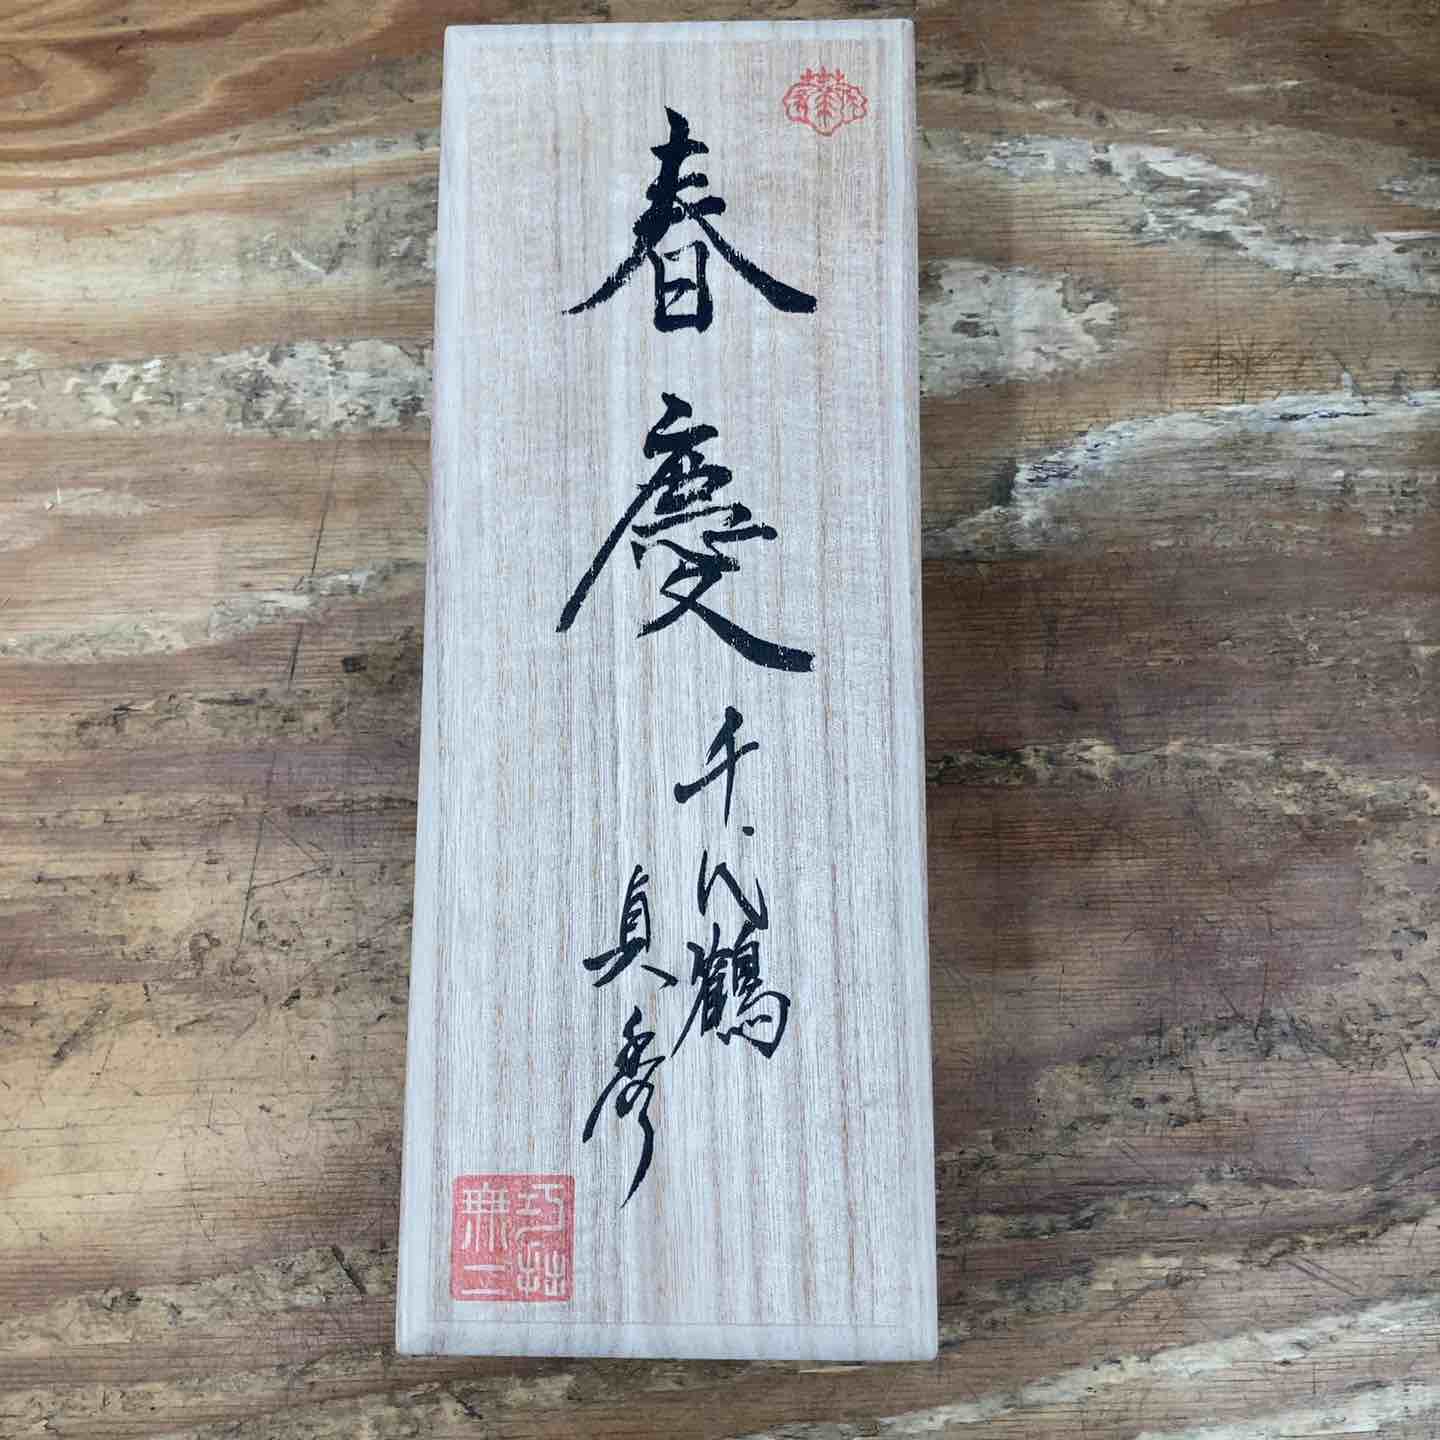 春慶
千代鶴
貞秀